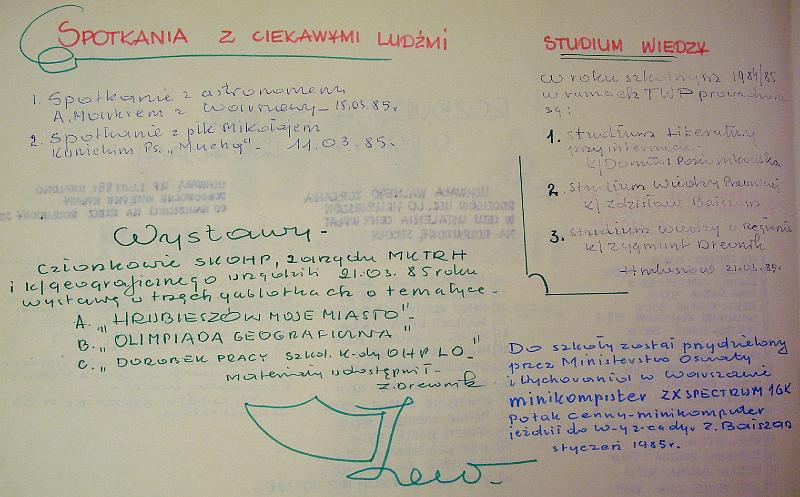 SPOTKANIA Z CIEKAWYMI LUDŹMI
1. Spotkanie z astronomem
A. Marksem z Warszawy – 15.03.85r.
2. Spotkanie z płk Mikołajem
Kunickim Ps. „Muchą” – 11.03.85.
STUDIUM WIEDZY
W roku szkolnym 1984/85
w ramach TWP prowadzone
są:
1. Studium Literatury
przy internacie –
k/ Danuta
2. Studium Wiedzy Prawniczej
k/ Zdzisław Baiszan
3. Studium Wiedzy o Regionie
k/ Zygmunt Drewnik
21.03.85r.
Wystawy –
Członkowie SKOHP, zarządu MKTRH
i k/geograficznego urządzili 21.03.85 roku
wystawę w trzech gablotkach o tematyce –
A. „HRUBIESZÓW MOJE MIASTO” –
B. „OLIMPIADA GEOGRAFICZNA”
C. „DOROBEK PRACY Szkol. K-dy OHP LO” –
Materiały udostępnił –
Z. Drewnik
Drew.
Do szkoły został przydzielony
przez Ministerstwo Oświaty
i Wychowania w Warszawie
minikomputer ZX SPECTRUM 16K
Po tak cenny – minikomputer
jeździł do W-y z-ca dyr. Z. Baiszan
styczeń 1985r.